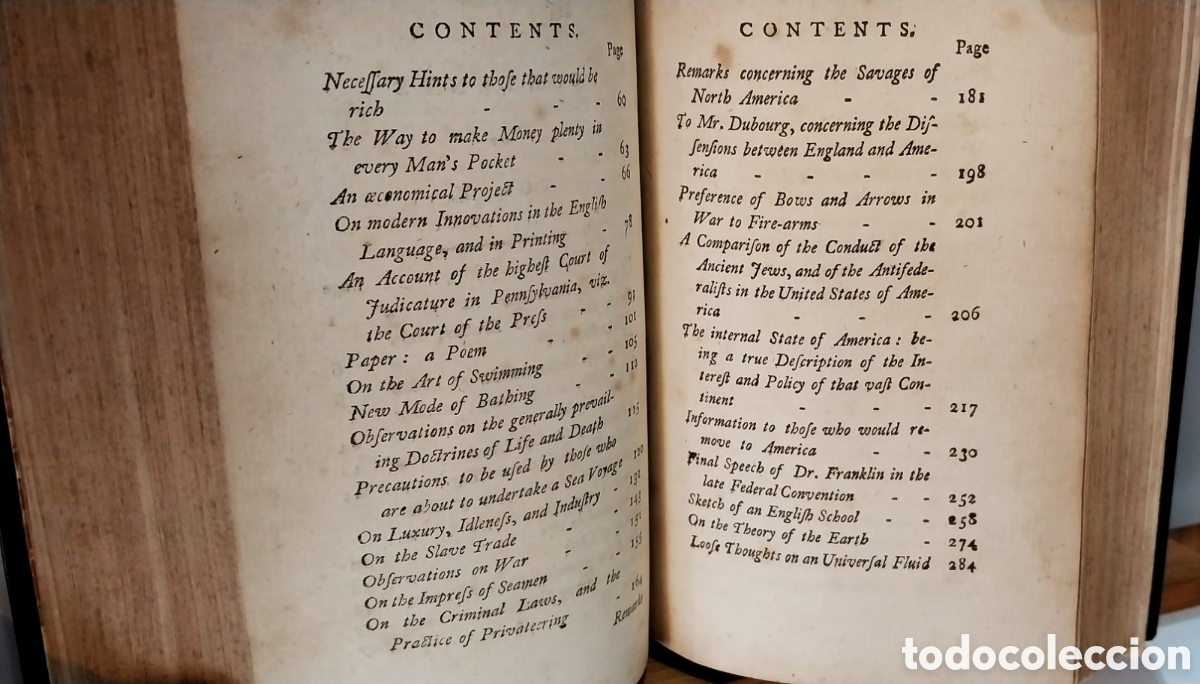 CONTENTS.
Page
Neceſſary Hints to thoſe that would be
rich - - - 60
The Way to make Money plenty in
every Man's Pocket - - 63
An œconomical Project - - 66
On modern Innovations in the Engliſh
Language, and in Printing - 78
An Account of the higheſt Court of
Judicature in Pennſylvania, viz.
the Court of the Preſs - - 91
Paper: a Poem - - 101
On the Art of Swimming - - 105
New Mode of Bathing - - 112
Obſervations on the generally prevail-
ing Doctrines of Life and Death 115
Precautions to be uſed by thoſe who
are about to undertake a Sea Voyage
On Luxury, Idleneſs, and Induſtry - 132
On the Slave Trade -
Obſervations on War - 151
On the Impreſs of Seamen -
On the Criminal Laws, and the
Practice of Privateering - 164
Remarks
CONTENTS.
Page
Remarks concerning the Savages of
North America - - 181
To Mr. Dubourg, concerning the Diſ-
ſenſions between England and Ame-
rica - - - - 198
Preference of Bows and Arrows in
War to Fire-arms - - 201
A Compariſon of the Conduct of the
Ancient Jews, and of the Antifede-
raliſts in the United States of Ame-
rica - - - 206
The internal State of America: be-
ing a true Deſcription of the In-
tereſt and Policy of that vaſt Con-
tinent - - - 217
Information to thoſe who would re-
move to America - - 230
Final Speech of Dr. Franklin in the
late Federal Convention - - 252
Sketch of an Engliſh School - - 258
On the Theory of the Earth - 274
Looſe Thoughts on an Univerſal Fluid 284
todocoleccion